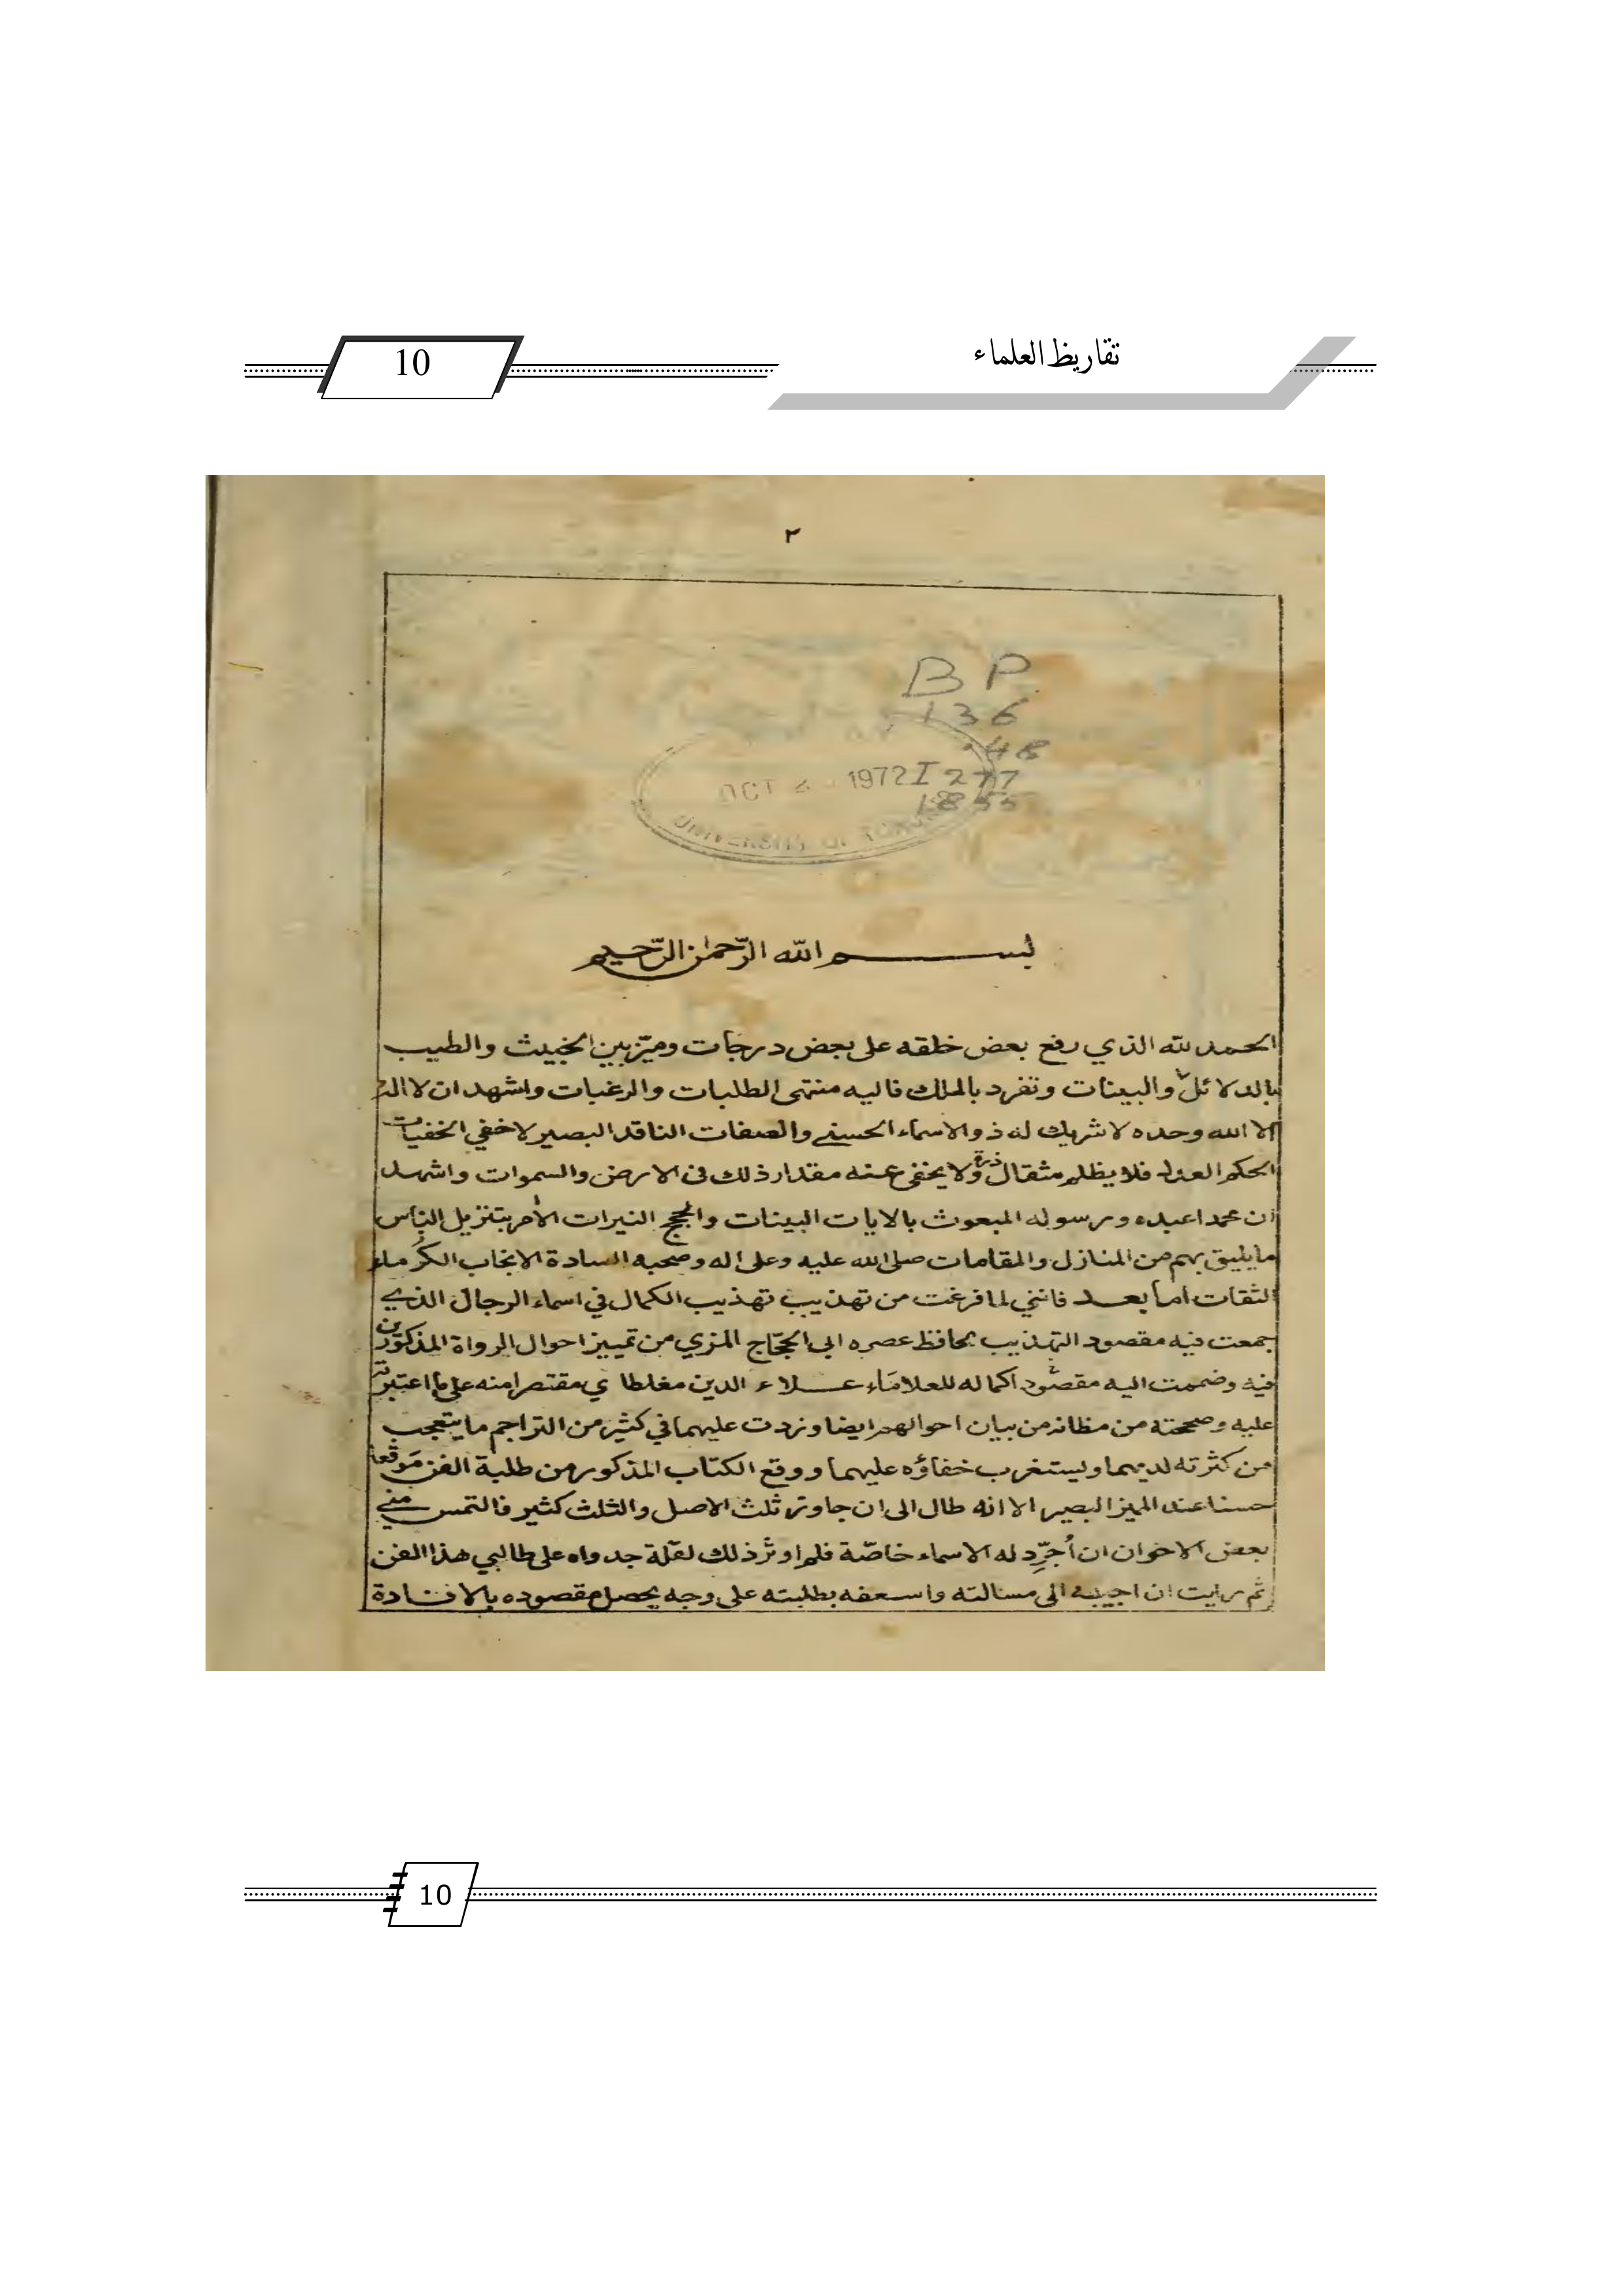 10
تقاريظ العلماء
٢
B P
136
.48
I 277
1855
OCT 1972
UNIVERSITY OF TORONTO
بسم الله الرّحمٰن الرّحيم
الحمد لله الذي رفع بعض خلقه على بعض درجات وميّز بين الخبيث والطيب
بالدلائل والبينات وتفرد بالملك فاليه منتهى الطلبات والرغبات واشهد ان لا اله
الا الله وحده لا شريك له ذو الاسماء الحسنے والصفات الناقد البصير لاخفي الخفيات
الحكم العدل فلا يظلم مثقال ذرة ولا يخفى عنه مقدار ذلك فى الارض والسموات واشهد
ان محمدا عبده ورسوله المبعوث بالايات البينات والحجج النيرات الأمر بتنزيل الناس
ما يليق بهم من المنازل والمقامات صلى الله عليه وعلى اله وصحبه السادة الانجاب الكُرماء
الثقات اما بعد فانني لما فرغت من تهذيب تهذيب الكمال في اسماء الرجال الذے
جمعت فيه مقصود التهذيب لحافظ عصره ابى الحجّاج المزي من تمييز احوال الرواة المذكورين
فيه وضممت اليه مقصود اكماله للعلامَاء عــلاء الدين مغلطاي مقتصرا منه على ما اعتبرته
عليه وصححته من مظانه من بيان احوالهم ايضا وزدت عليهما في كثير من التراجم ما يتعجب
من كثرته لديهما ويستغرب خفاؤه عليهما ووقع الكتاب المذكور من طلبة الفن مَوقعا
حسنا عند المميز البصير الا انه طال الى ان جاوز ثلث الاصل والثلث كثير فالتمس منے
بعض الاخوان ان أُجرِّد له الاسماء خاصّة فلم اوثر ذلك لقلّة جدواه على طالبي هذا الفن
ثم رايت ان اجيبه الى مسالته واسعفه بطلبته على وجه يحصل مقصوده بالافادة
10